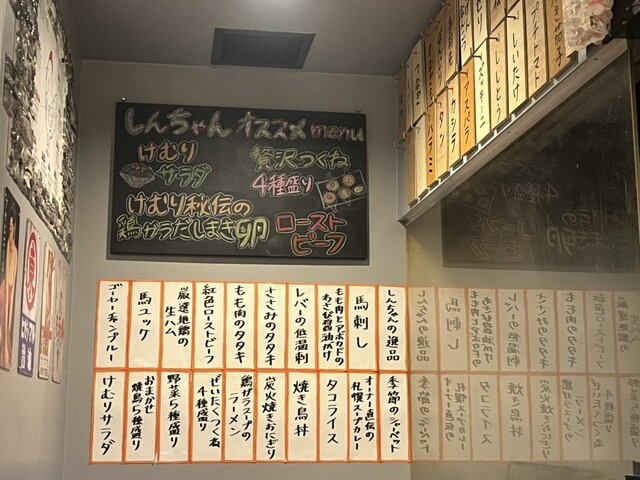 しんちゃん オススメ menu
けむり
サラダ
贅沢つくね
4種盛り
けむり秘伝の
鶏ガラだしまき卵
ロースト
ビーフ
しんちゃんの逸品
馬刺し
もも肉とアボカドの
わさび醤油がけ
レバーの低温刺
ささみのタタキ
もも肉のタタキ
紅色ローストビーフ
厳選地鶏の
生ハム
馬ユッケ
ゴーヤーチャンプルー
季節のシャーベット
オーナー直伝の
札幌スープカレー
タコライス
焼き鳥丼
炭火焼きおにぎり
鶏ガラスープの
ラーメン
ぜいたくつくね
4種盛り
野菜5種盛り
おまかせ
焼鳥5種盛り
けむりサラダ
プチトマト
しいたけ
ししとう